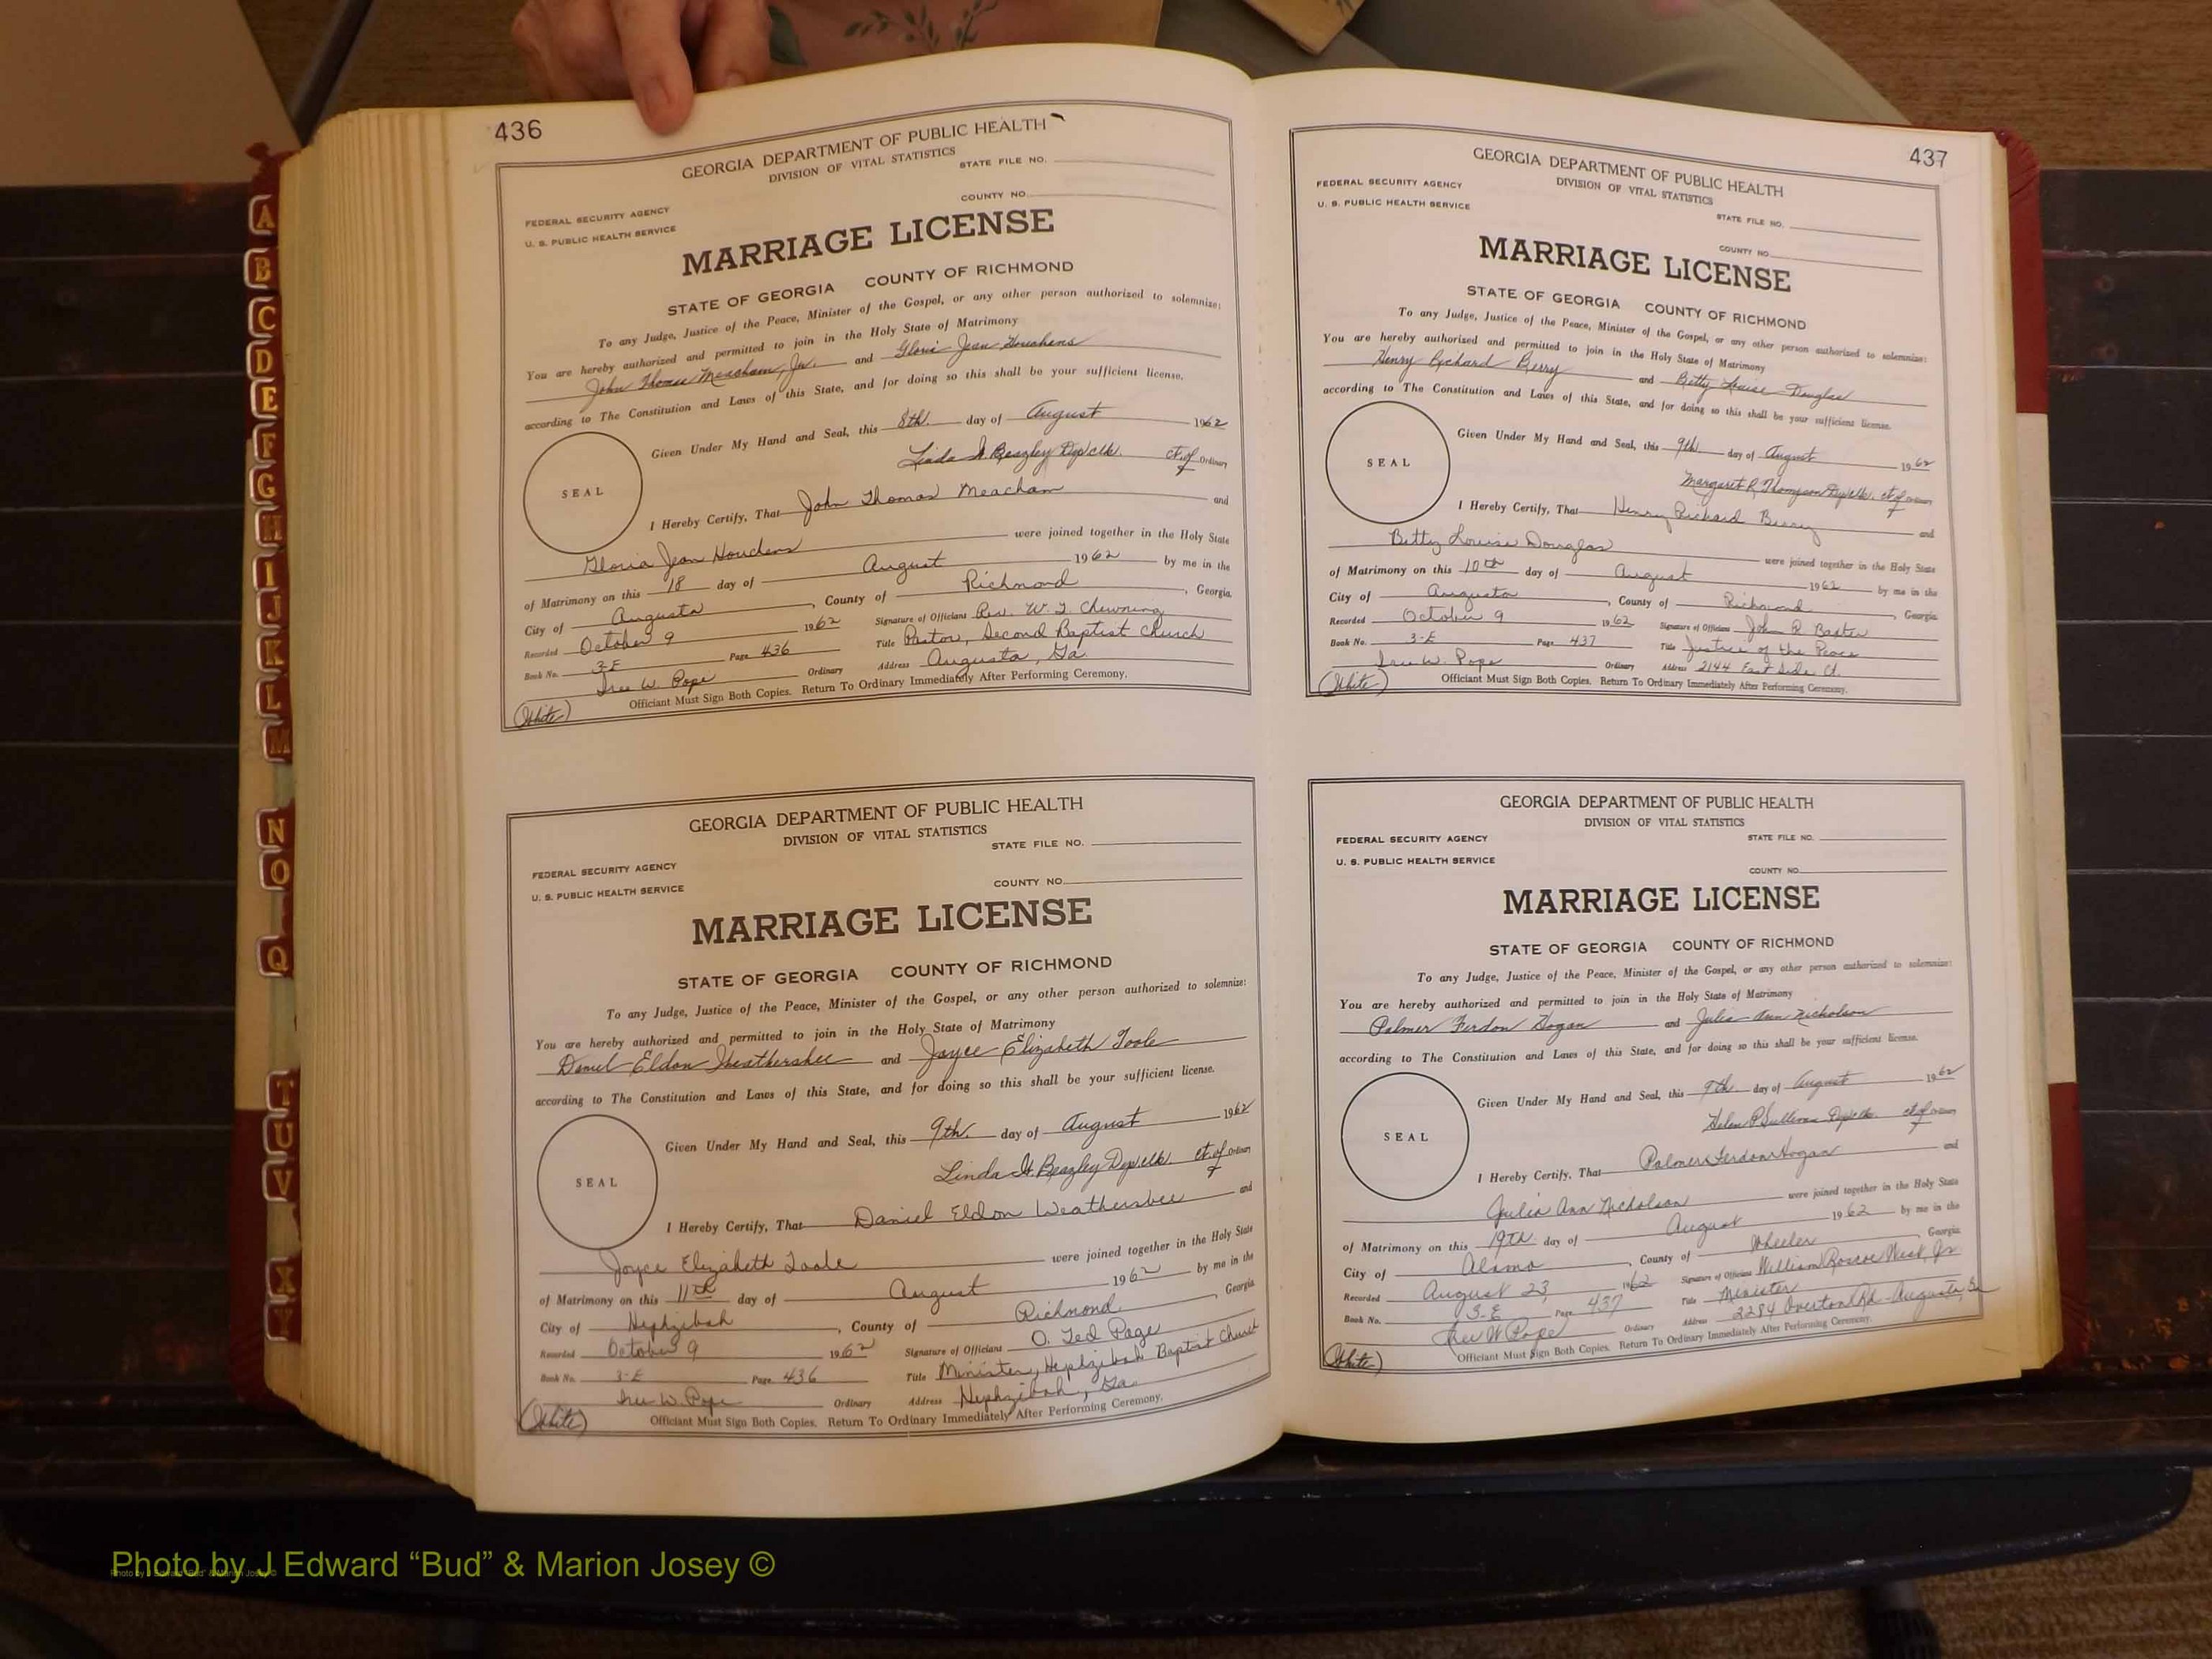 436
GEORGIA DEPARTMENT OF PUBLIC HEALTH
DIVISION OF VITAL STATISTICS
STATE FILE NO.
COUNTY NO.
FEDERAL SECURITY AGENCY
U. S. PUBLIC HEALTH SERVICE
MARRIAGE LICENSE
STATE OF GEORGIA COUNTY OF RICHMOND
To any Judge, Justice of the Peace, Minister of the Gospel, or any other person authorized to solemnize:
You are hereby authorized and permitted to join in the Holy State of Matrimony
John Thomas Meacham, Jr. and Gloria Jean Houchens
according to The Constitution and Laws of this State, and for doing so this shall be your sufficient license.
Given Under My Hand and Seal, this 8th. day of August 1962
Linda H. Beazley Dep clk. ct. of Ordinary
SEAL
I Hereby Certify, That John Thomas Meacham and
Gloria Jean Houchens were joined together in the Holy State
of Matrimony on this 18 day of August 1962 by me in the
City of Augusta, County of Richmond, Georgia.
Recorded October 9 1962 Signature of Officiant Rev. W. J. Chewning
Book No. 3-E Page 436 Title Pastor, Second Baptist Church
Iree W. Pope Ordinary Address Augusta, Ga.
Officiant Must Sign Both Copies. Return To Ordinary Immediately After Performing Ceremony.
(White)
GEORGIA DEPARTMENT OF PUBLIC HEALTH
DIVISION OF VITAL STATISTICS
STATE FILE NO.
COUNTY NO.
FEDERAL SECURITY AGENCY
U. S. PUBLIC HEALTH SERVICE
MARRIAGE LICENSE
STATE OF GEORGIA COUNTY OF RICHMOND
To any Judge, Justice of the Peace, Minister of the Gospel, or any other person authorized to solemnize:
You are hereby authorized and permitted to join in the Holy State of Matrimony
Daniel Eldon Weathersbee and Joyce Elizabeth Toole
according to The Constitution and Laws of this State, and for doing so this shall be your sufficient license.
Given Under My Hand and Seal, this 9th. day of August 1962
Linda H. Beazley Dep clk. ct. of Ordinary
SEAL
I Hereby Certify, That Daniel Eldon Weathersbee and
Joyce Elizabeth Toole were joined together in the Holy State
of Matrimony on this 11th day of August 1962 by me in the
City of Hephzibah, County of Richmond, Georgia
Recorded October 9 1962 Signature of Officiant O. Ted Page
Book No. 3-E Page 436 Title Minister, Hephzibah Baptist Church
Iree W. Pope Ordinary Address Hephzibah, Ga.
Officiant Must Sign Both Copies. Return To Ordinary Immediately After Performing Ceremony.
(White)
437
GEORGIA DEPARTMENT OF PUBLIC HEALTH
DIVISION OF VITAL STATISTICS
STATE FILE NO.
COUNTY NO.
FEDERAL SECURITY AGENCY
U. S. PUBLIC HEALTH SERVICE
MARRIAGE LICENSE
STATE OF GEORGIA COUNTY OF RICHMOND
To any Judge, Justice of the Peace, Minister of the Gospel, or any other person authorized to solemnize:
You are hereby authorized and permitted to join in the Holy State of Matrimony
Henry Richard Berry and Betty Louise Douglas
according to The Constitution and Laws of this State, and for doing so this shall be your sufficient license.
Given Under My Hand and Seal, this 9th. day of August 1962
Margaret R. Thompson Dep clk. ct. of Ordinary
SEAL
I Hereby Certify, That Henry Richard Berry and
Betty Louise Douglas were joined together in the Holy State
of Matrimony on this 10th day of August 1962 by me in the
City of Augusta, County of Richmond, Georgia
Recorded October 9 1962 Signature of Officiant John R Baxter
Book No. 3-E Page 437 Title Justice of the Peace
Iree W. Pope Ordinary Address 2144 East Side Ct.
Officiant Must Sign Both Copies. Return To Ordinary Immediately After Performing Ceremony.
(White)
GEORGIA DEPARTMENT OF PUBLIC HEALTH
DIVISION OF VITAL STATISTICS
STATE FILE NO.
COUNTY NO.
FEDERAL SECURITY AGENCY
U. S. PUBLIC HEALTH SERVICE
MARRIAGE LICENSE
STATE OF GEORGIA COUNTY OF RICHMOND
To any Judge, Justice of the Peace, Minister of the Gospel, or any other person authorized to solemnize:
You are hereby authorized and permitted to join in the Holy State of Matrimony
Palmer Ferdon Hogan and Julia Ann Nicholson
according to The Constitution and Laws of this State, and for doing so this shall be your sufficient license.
Given Under My Hand and Seal, this 9th. day of August 1962
Helen P Sullivan Dep clk. ct. of Ordinary
SEAL
I Hereby Certify, That Palmer Ferdon Hogan and
Julia Ann Nicholson were joined together in the Holy State
of Matrimony on this 19th day of August 1962 by me in the
City of Alamo, County of Wheeler Georgia
Recorded August 23 1962 Signature of Officiant William Roscoe West, Jr
Book No. 3-E Page 437 Title Minister
Iree W Pope Ordinary Address 2284 Overton Rd - Augusta, Ga
Officiant Must Sign Both Copies. Return To Ordinary Immediately After Performing Ceremony.
(White)
A
B
C
D
E
F
G
H
I
J
K
L
M
N
O
Q
T
U
V
X
Y
Photo by J Edward “Bud” & Marion Josey ©
Photo by J Edward “Bud” & Marion Josey ©